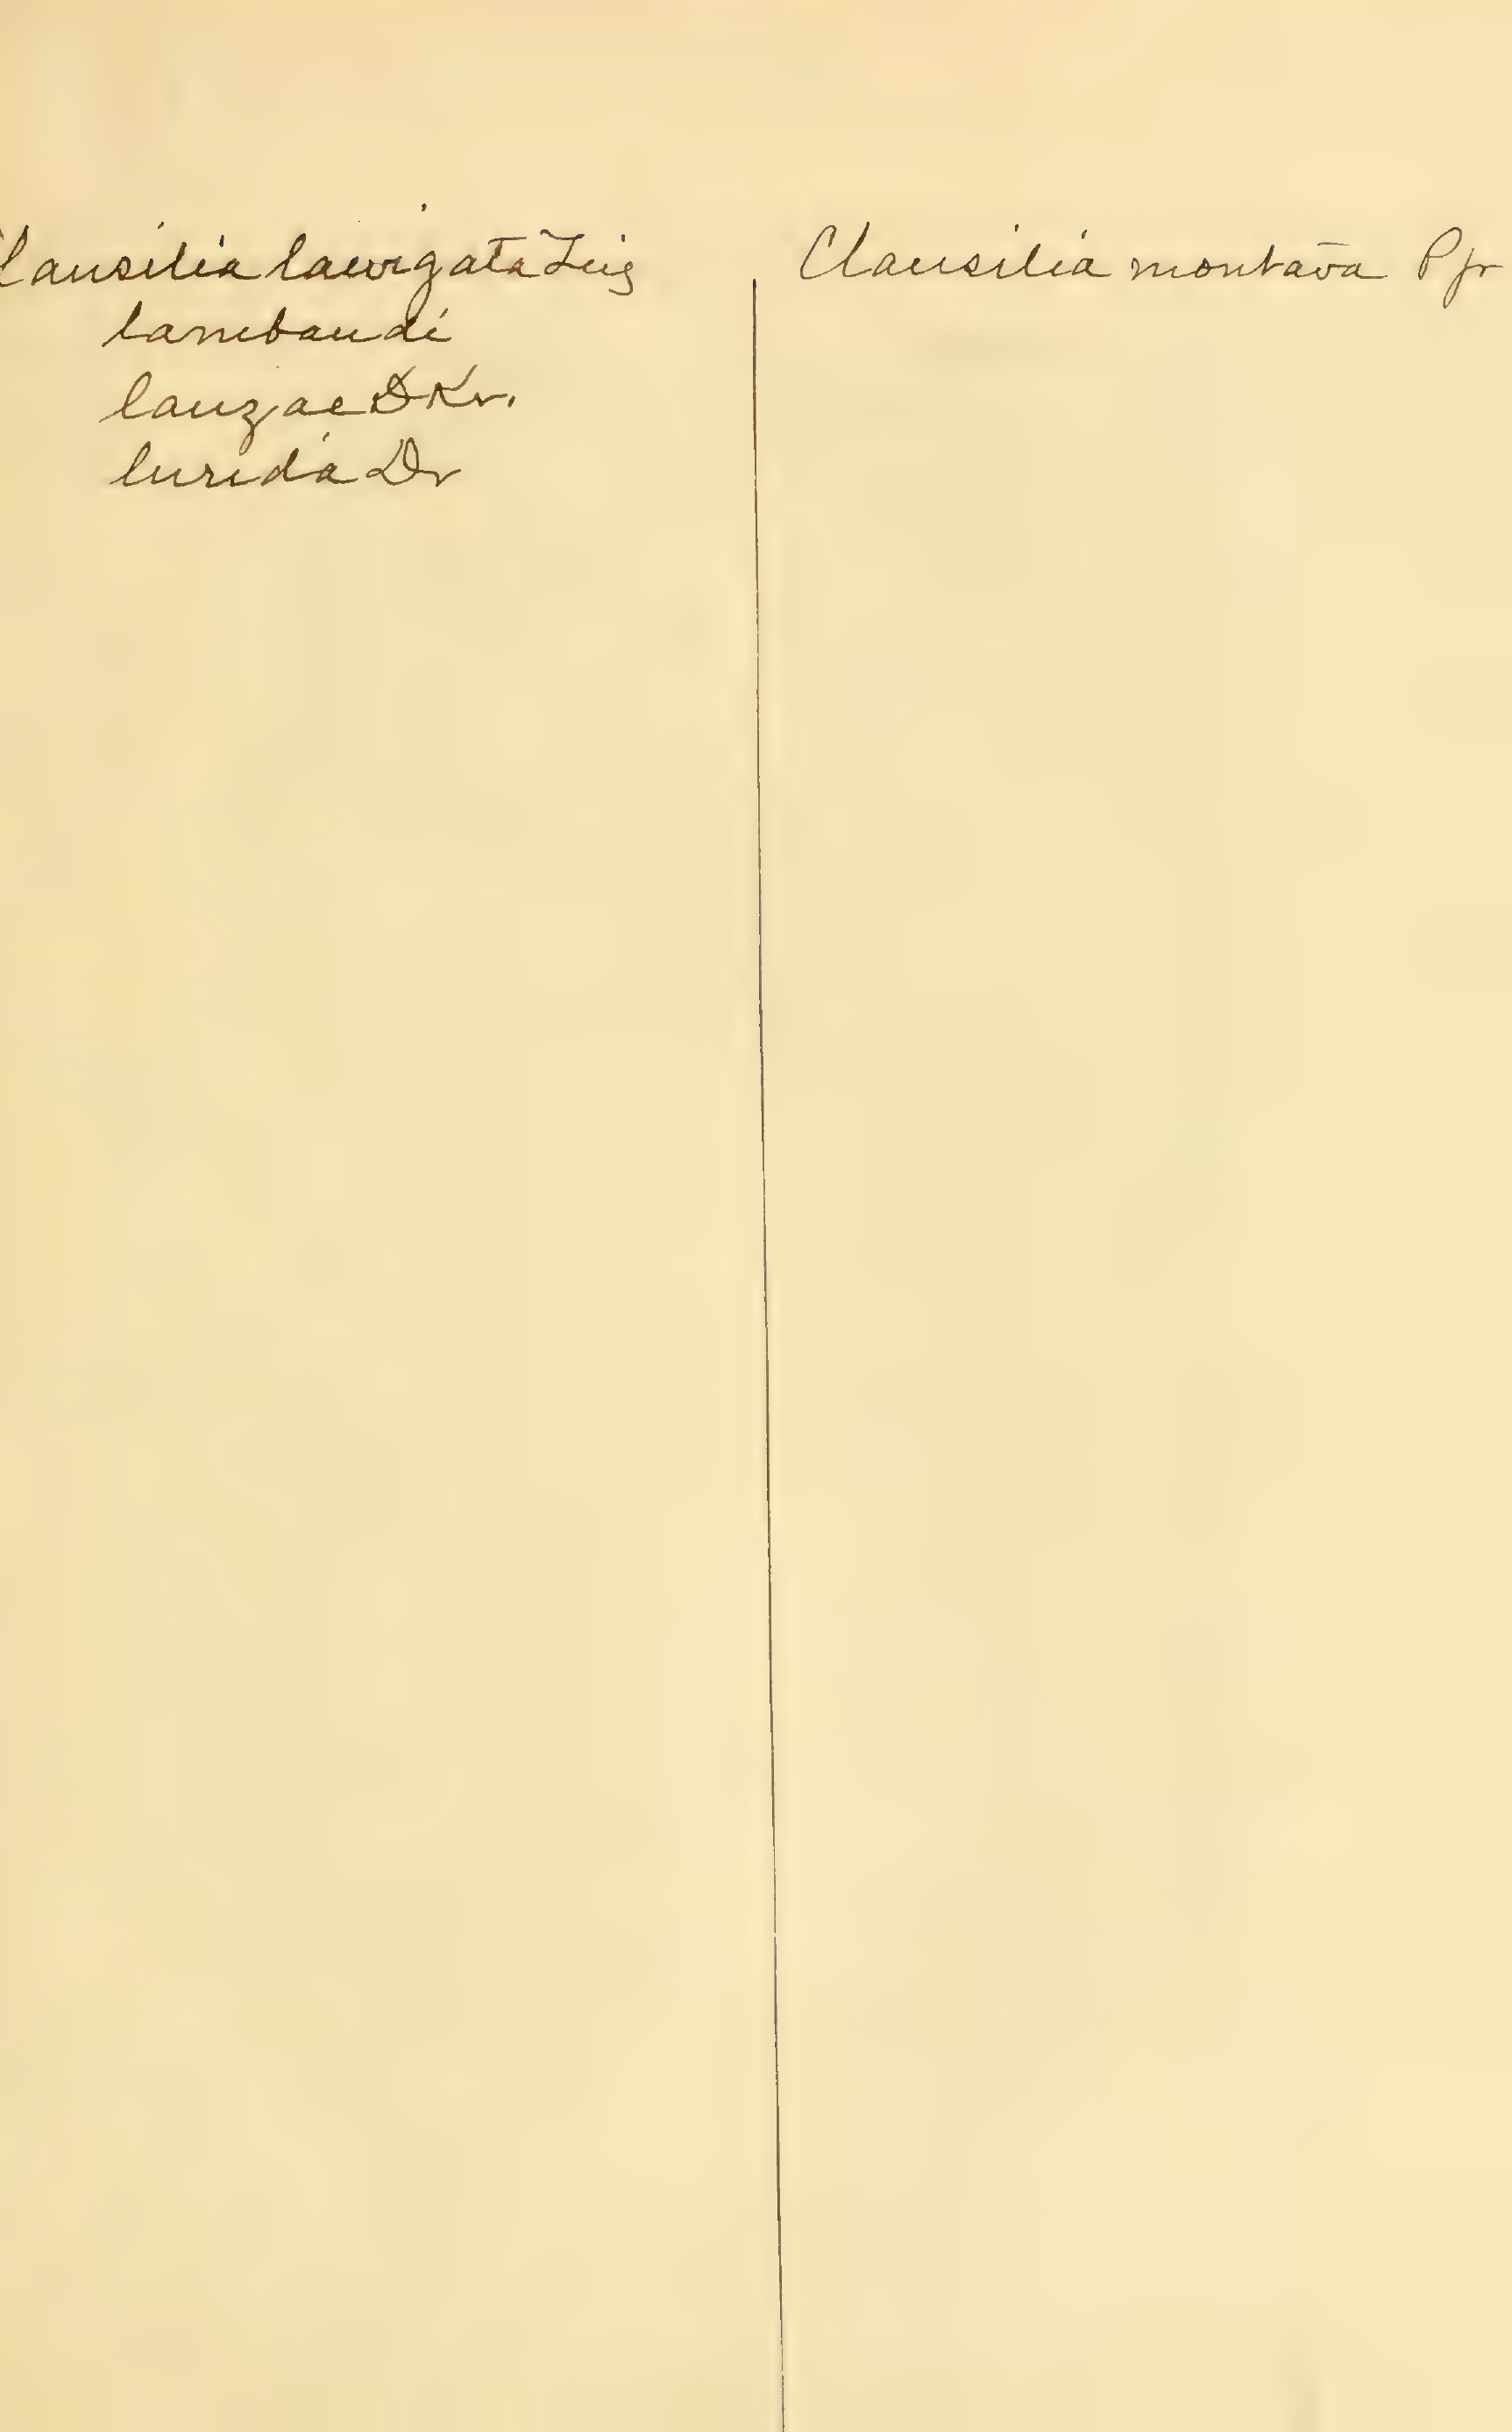 Clausilia laevigata Zieg
lambaudi
lauzae DKr.
lurida Dr
Clausilia montava Pfr